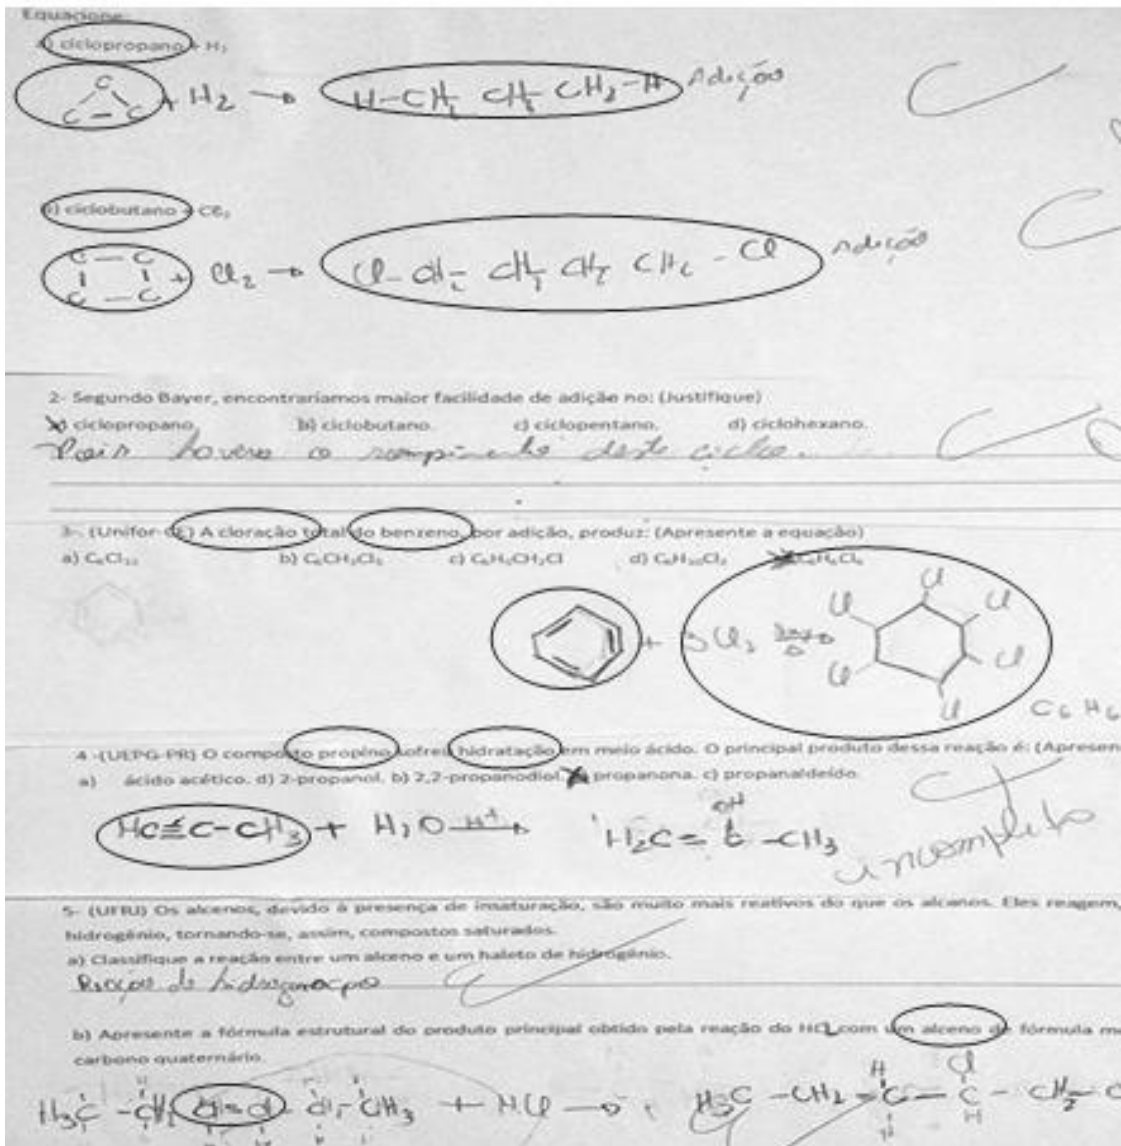 Equacione:
a) ciclopropano + H₂
C C - C + H₂ → H-CH₂ CH₂ CH₂-H Adição
b) ciclobutano + Cℓ₂
C - C C - C + Cl₂ → Cl-CH₂ CH₂ CH₂ CH₂ - Cl Adição
2- Segundo Bayer, encontraríamos maior facilidade de adição no: (Justifique)
ciclopropano. b) ciclobutano. c) ciclopentano. d) ciclohexano.
Pois houve o rompimento deste ciclo.
3-. (Unifor-CE) A cloração total do benzeno, por adição, produz: (Apresente a equação)
a) C₆Cl₁₂ b) C₆CH₃Cl₅ c) C₆H₅CH₂Cl d) C₆H₁₀Cl₂ C₆H₆Cl₆
Cl
Cl Cl
+ 3Cl₂ Δ
Cl Cl
Cl C₆H₆
4 -(UEPG-PR) O composto propino sofreu hidratação em meio ácido. O principal produto dessa reação é: (Apresen
a) ácido acético. d) 2-propanol. b) 2,2-propanodiol. propanona. c) propanaldeído.
OH
HC≡C-CH₃ + H₂O H⁺→ H₂C=C-CH₃
incompleto
5- (UFRJ) Os alcenos, devido à presença de insaturação, são muito mais reativos do que os alcanos. Eles reagem,
hidrogênio, tornando-se, assim, compostos saturados.
a) Classifique a reação entre um alceno e um haleto de hidrogênio.
Reação de hidrogenação
b) Apresente a fórmula estrutural do produto principal obtido pela reação do HCl com um alceno de fórmula m
carbono quaternário.
H Cl
H₃C - CH₂ CH=CH - CH₂ CH₃ + HCl → H₃C - CH₂ - C - C - CH₂ - C
H H